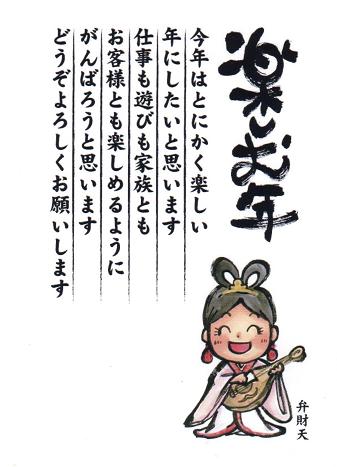 楽しむ年
今年はとにかく楽しい
年にしたいと思います
仕事も遊びも家族とも
お客様とも楽しめるように
がんばろうと思います
どうぞよろしくお願いします
弁財天